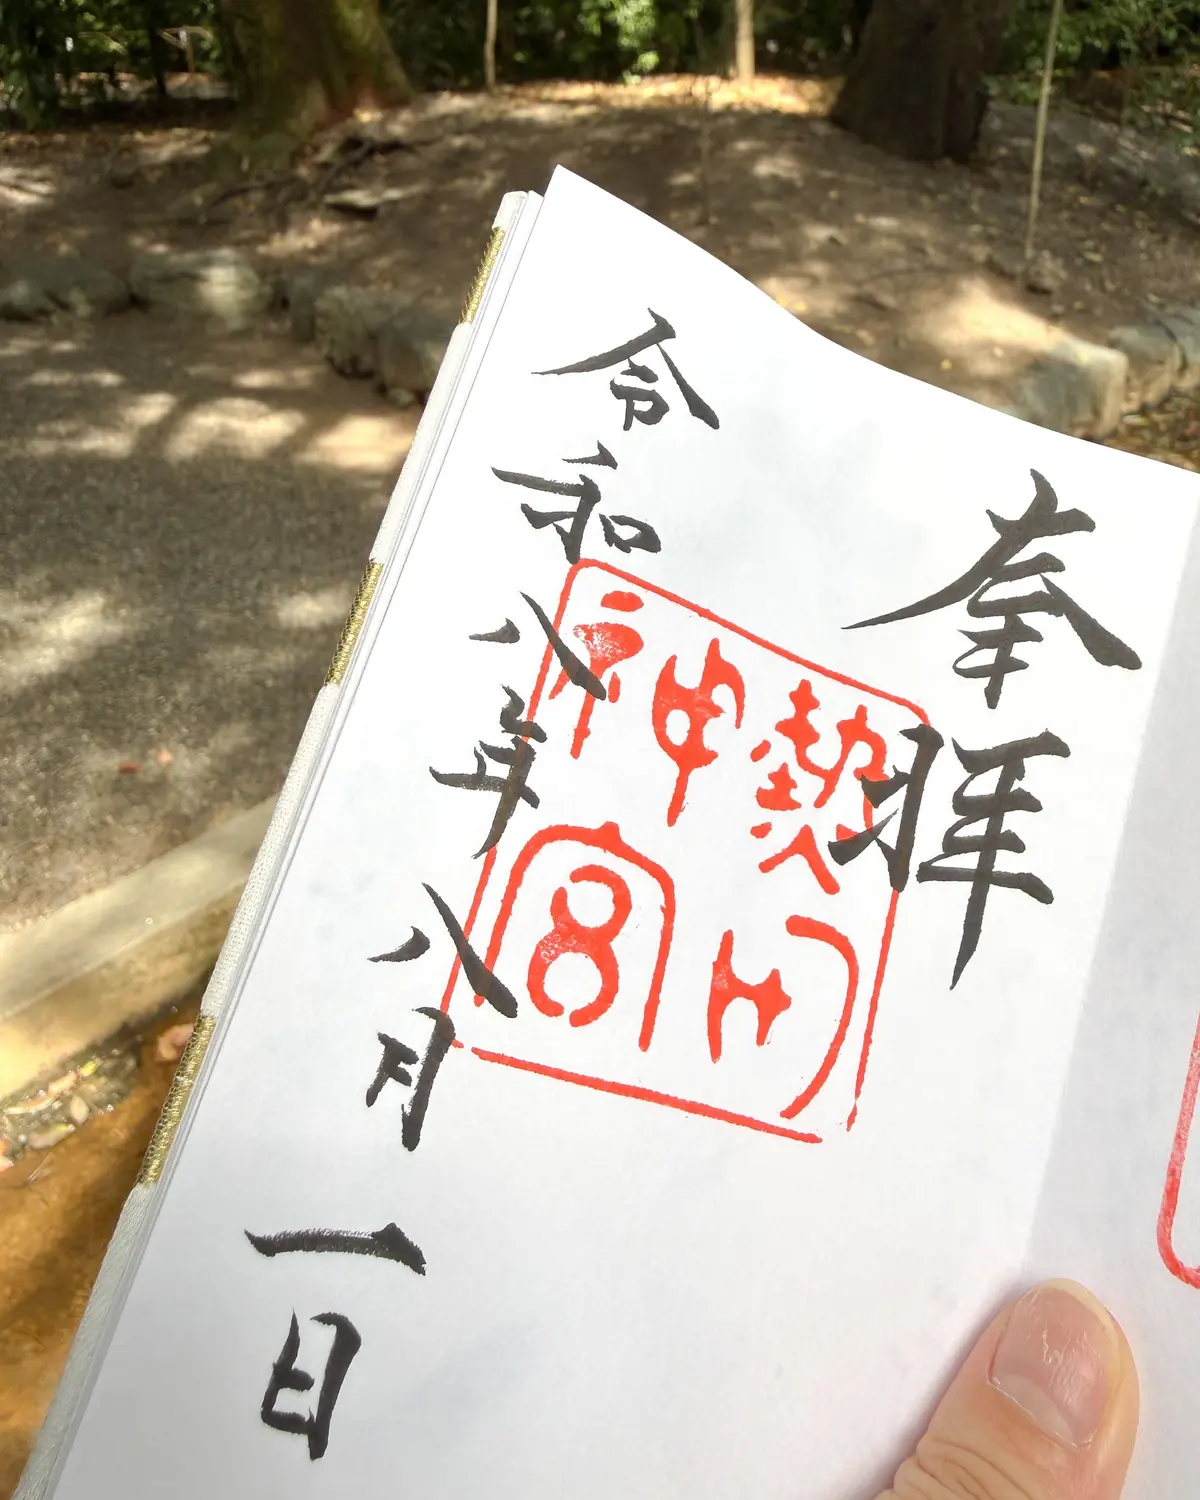 奉拝
熱田
神宮
令和八年八月一日